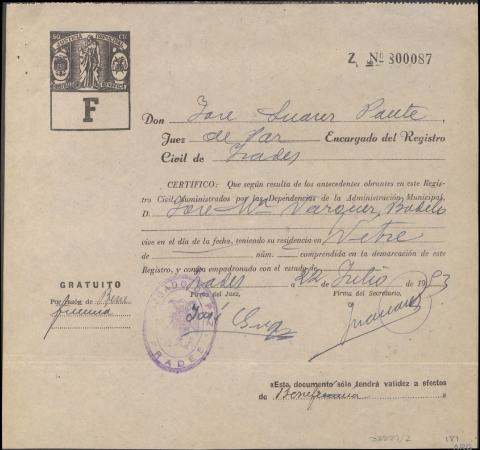 50 Cts
JUSTICIA MUNICIPAL
F
Z, Nº 800087
Don José Suarez Ponte
Juez de Paz Encargado del Registro
Civil de Frades
CERTIFICO: Que según resulta de los antecedentes obrantes en este Regis-
tro Civil y suministrados por las Dependencias de la Administración Municipal,
D. José Mª Vázquez
vive en el día de la fecha, teniendo su residencia en
de núm. comprendida en la demarcación de este
Registro, y consta empadronado con el estado de
GRATUITO
Frades a 22 de Julio de 1953
Por razón de
Firma del Juez,
Firma del Secretario,
José
JUZGADO DE PAZ
FRADES
«Este documento sólo tendrá validez a efectos
de Beneficencia »
187